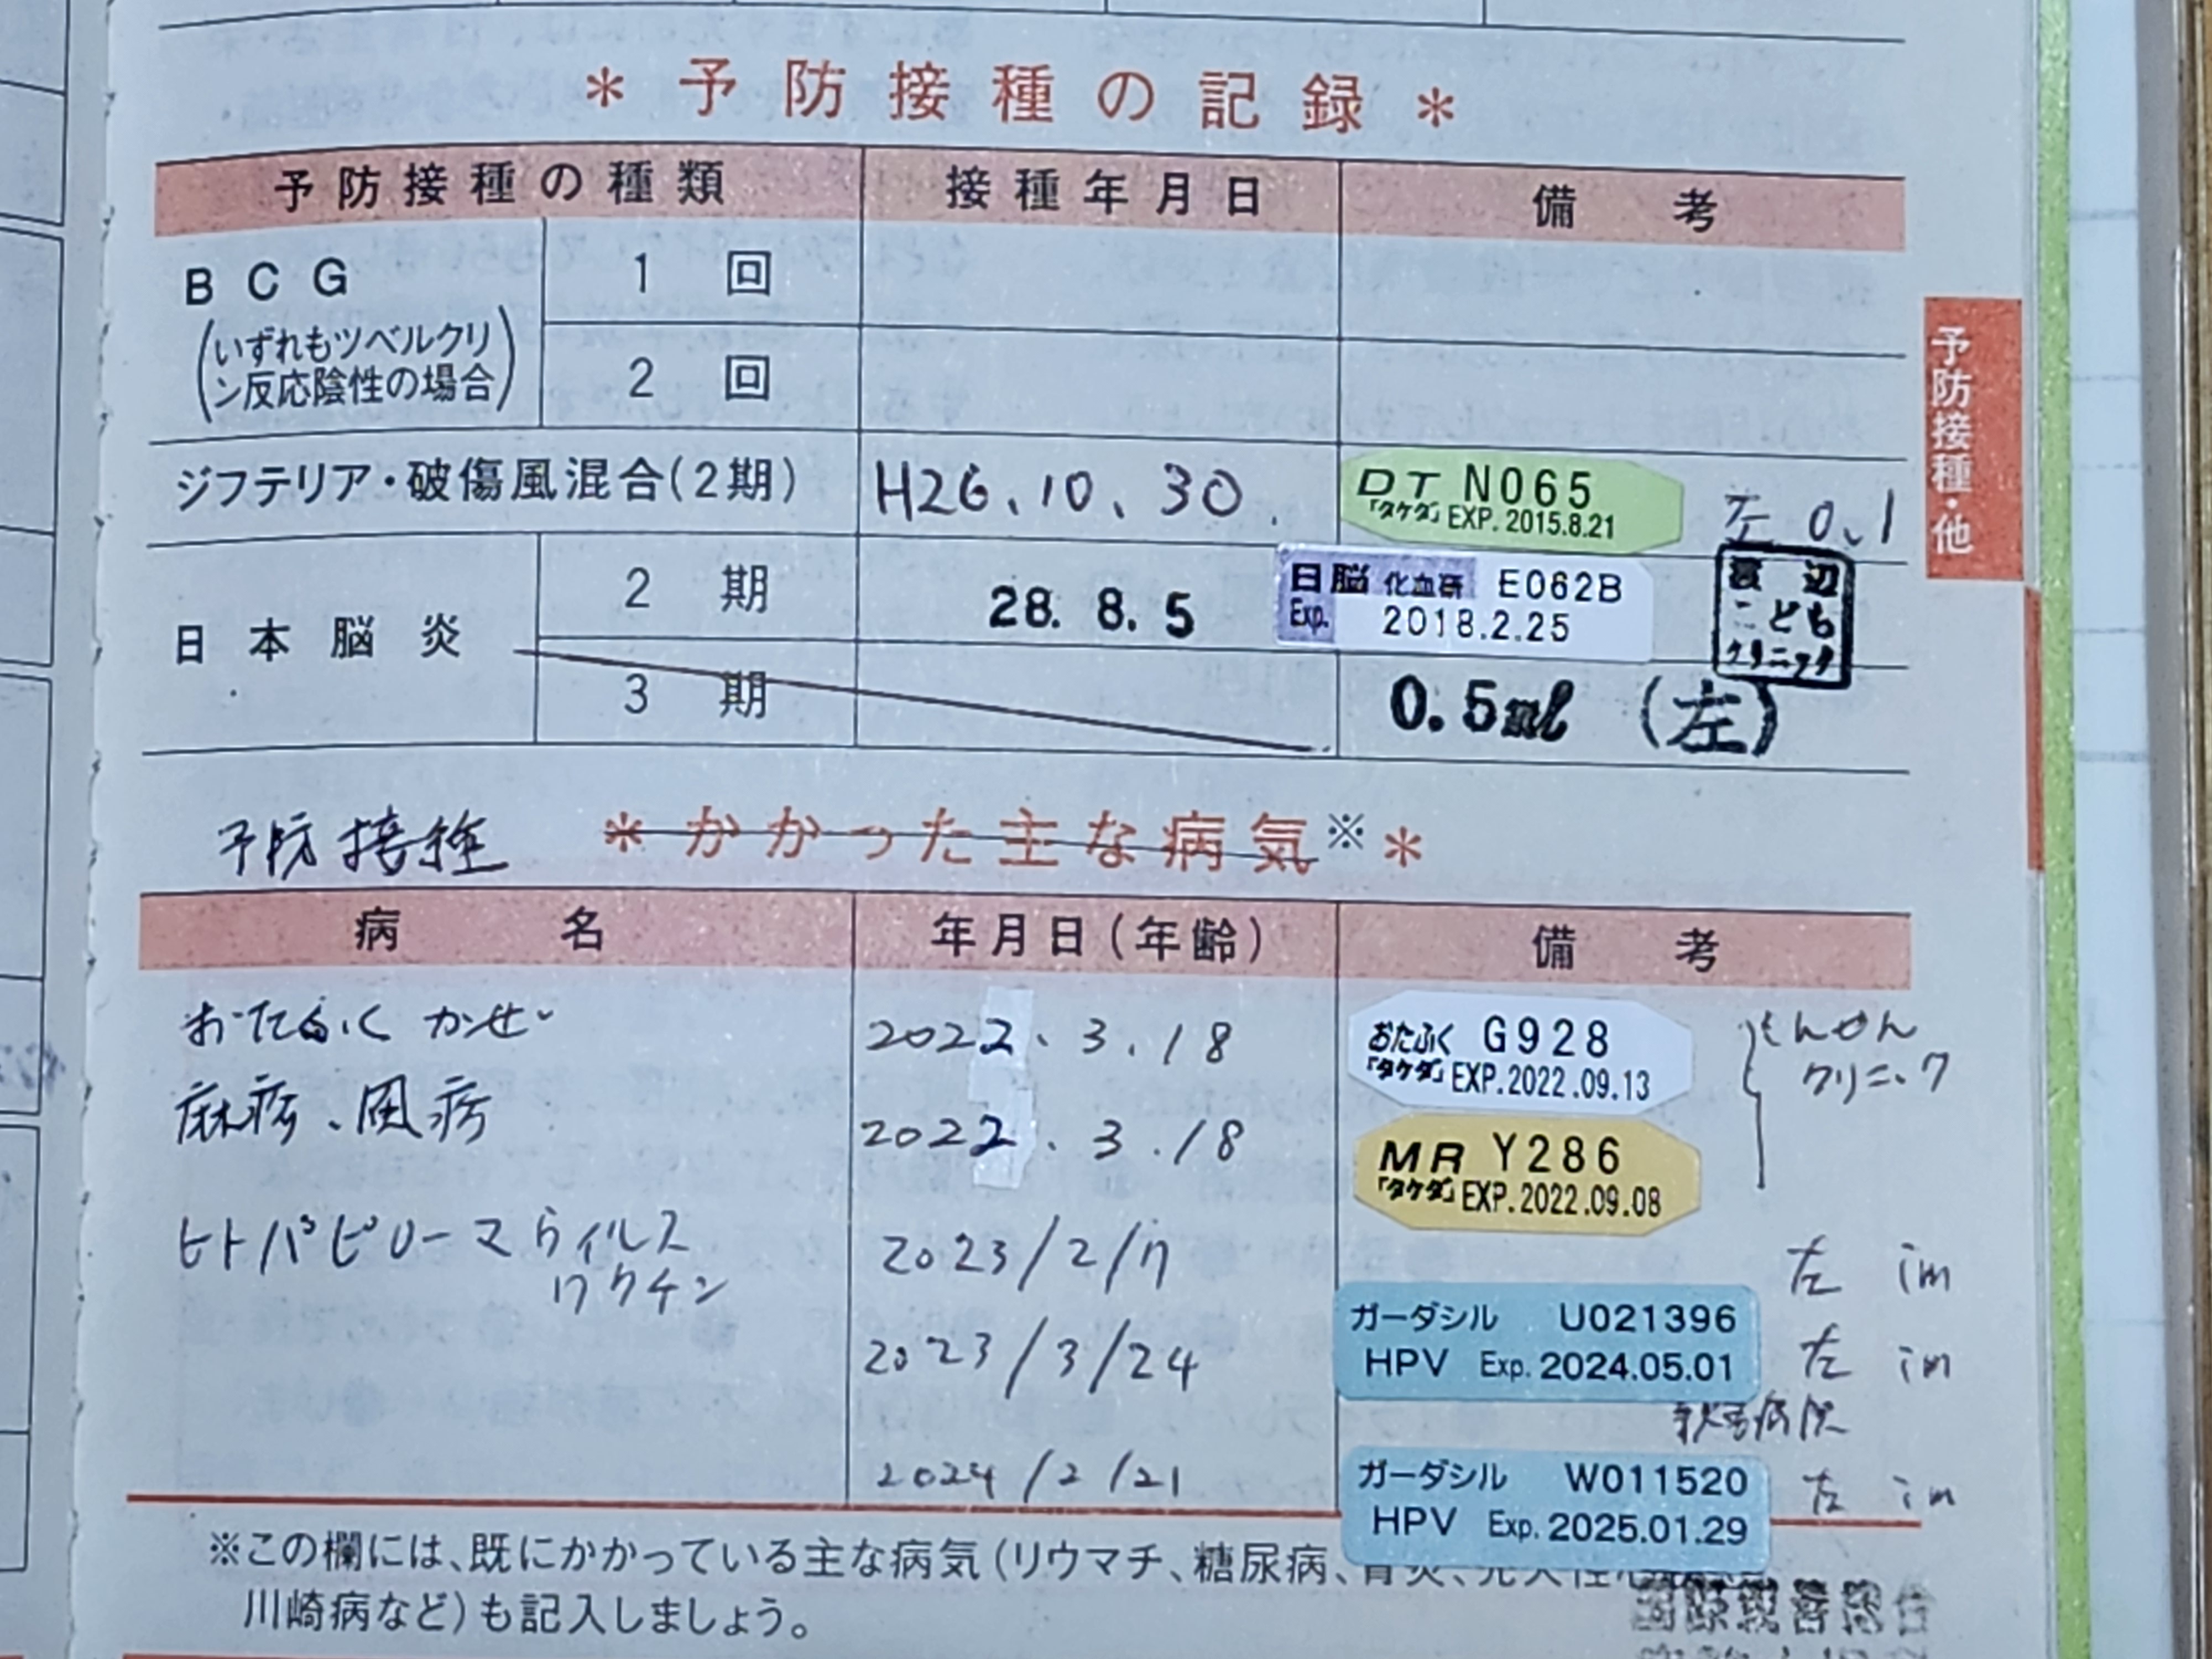 ＊予防接種の記録＊
予防接種の種類 接種年月日 備考
BCG 1回
(いずれもツベルクリン反応陰性の場合) 2回
ジフテリア・破傷風混合(2期) H26.10.30. DT N065 左 0.1
「タケダ」EXP. 2015.8.21
日本脳炎 2期 28. 8. 5 日脳 化血研 E062B
Exp. 2018.2.25
渡辺
こども
クリニック
3期 0.5ml (左)
予防接種 ＊かかった主な病気※＊
病名 年月日(年齢) 備考
おたふくかぜ 2022.3.18 おたふく G928
「タケダ」EXP.2022.09.13
クリニック
麻疹、風疹 2022.3.18 MR Y286
「タケダ」EXP.2022.09.08
ヒトパピローマウイルス 2023/2/17 左 im
ワクチン
2023/3/24 ガーダシル U021396 左 im
HPV Exp. 2024.05.01
病院
2024/2/21 ガーダシル W011520 左 im
HPV Exp. 2025.01.29
※この欄には、既にかかっている主な病気(リウマチ、糖尿病、
川崎病など)も記入しましょう。
予防接種・他